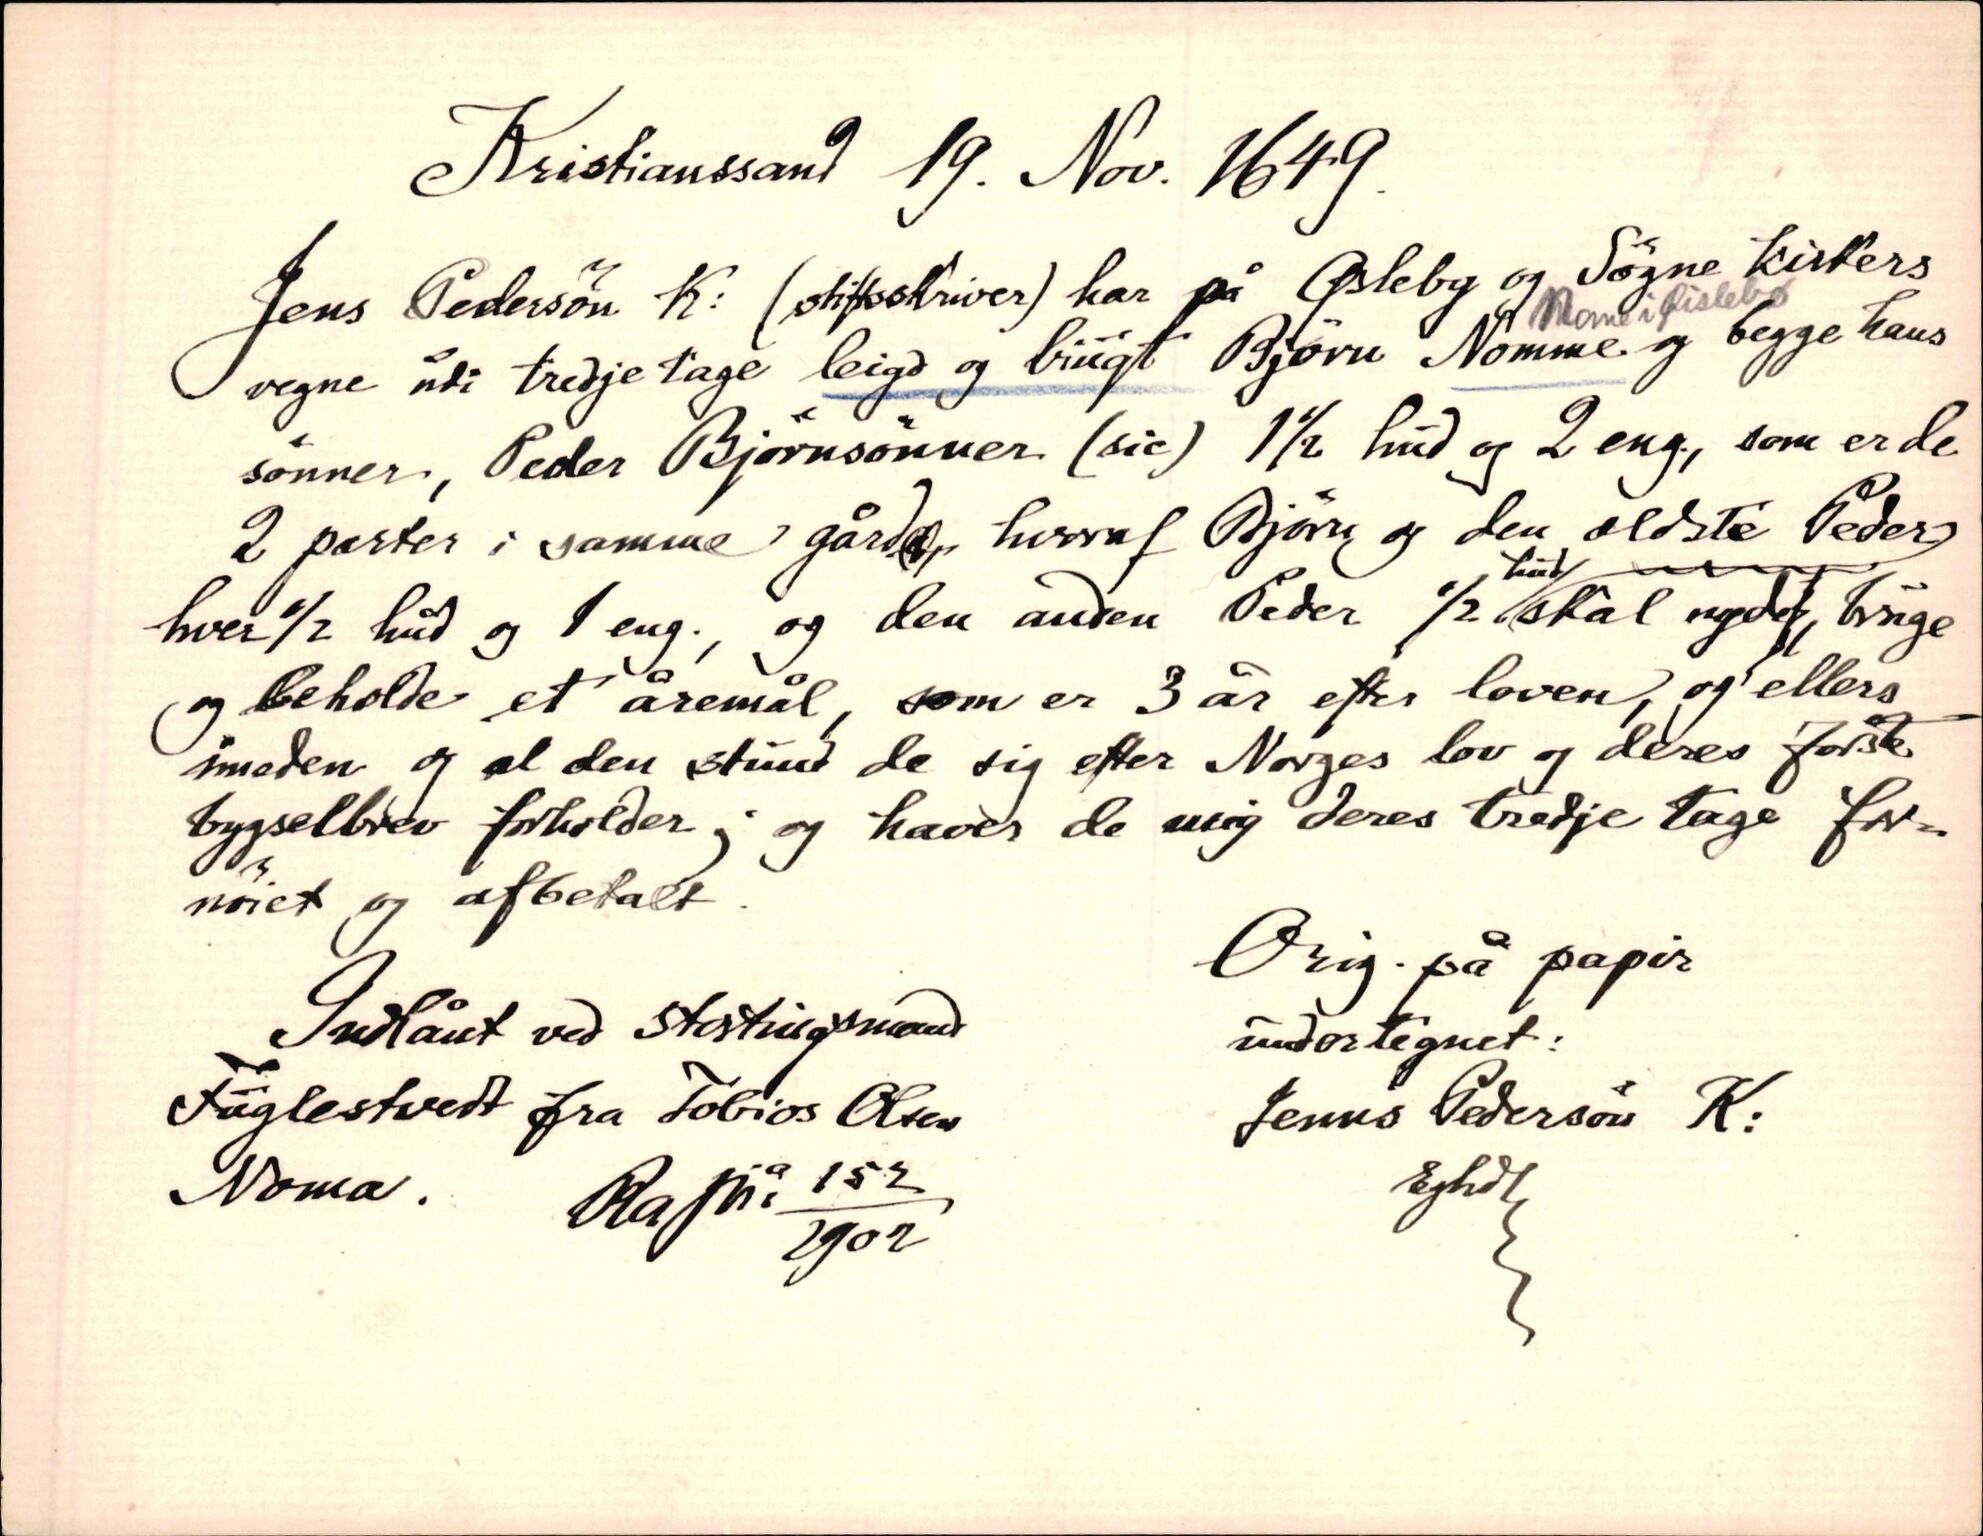 Kristianssand 19. Nov. 1649.
Jens Pedersön K: (stiftsskriver) har på Øsleby og Sögne kirkers
Nome i Øislebø
vegne udi tredje tage leigd og bugt Björn Nomme og begge hans
sönner, Peder Björnsönner (sic) 1 1/2 hud og 2 eng., som er de
2 parter i samme gård, hvoraf Björn og den ældste Peder
hud
hver 1/2 hud og 1 eng., og den anden Peder 1/2 skal nyde, bruge
og beholde et åremål, som er 3 år efter loven, og ellers
imeden og al den stund de sig efter Norges lov og deres förste
bygselbrev forholder; og haver de mig deres tredje tage for-
nöiet og afbetalt.
Orig. på papir
undertegnet:
Jenns Pedersön K:
Eghdt
Indlånt ved stortingsmand
Fuglestvedt fra Tobias Olsen
Noma. Ra jnr 152/1902